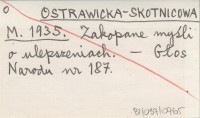 O
OSTRAWICKA-SKOTNICOWA
M. 1935. Zakopane myśli
o ulepszeniach. — Głos
Narodu nr 187.